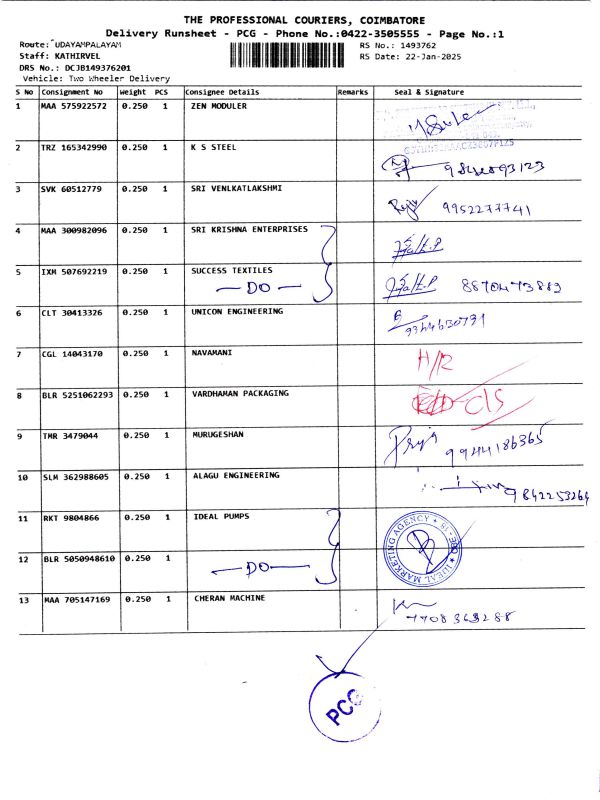 THE PROFESSIONAL COURIERS, COIMBATORE
Delivery Runsheet - PCG - Phone No.:0422-3505555 - Page No.:1
Route: UDAYAMPALAYAM
RS No.: 1493762
Staff: KATHIRVEL
RS Date: 22-Jan-2025
DRS No.: DCJB149376201
Vehicle: Two Wheeler Delivery
S No Consignment No Weight PCS Consignee Details Remarks Seal & Signature
1 MAA 575922572 0.250 1 ZEN MODULER
2 TRZ 165342990 0.250 1 K S STEEL
3 SVK 60512779 0.250 1 SRI VENLKATLAKSHMI 9952277741
4 MAA 300982096 0.250 1 SRI KRISHNA ENTERPRISES
5 IXM 507692219 0.250 1 SUCCESS TEXTILES
— DO —
6 CLT 30413326 0.250 1 UNICON ENGINEERING 9344630791
7 CGL 14043170 0.250 1 NAVAMANI H/R
8 BLR 5251062293 0.250 1 VARDHAMAN PACKAGING C/S
9 TMR 3479044 0.250 1 MURUGESHAN Priya 9944186365
10 SLM 362988605 0.250 1 ALAGU ENGINEERING 9842253264
11 RKT 9804866 0.250 1 IDEAL PUMPS
IDEAL MARKETING AGENCY
12 BLR 5050948610 0.250 1 — DO —
13 MAA 705147169 0.250 1 CHERAN MACHINE
PCG